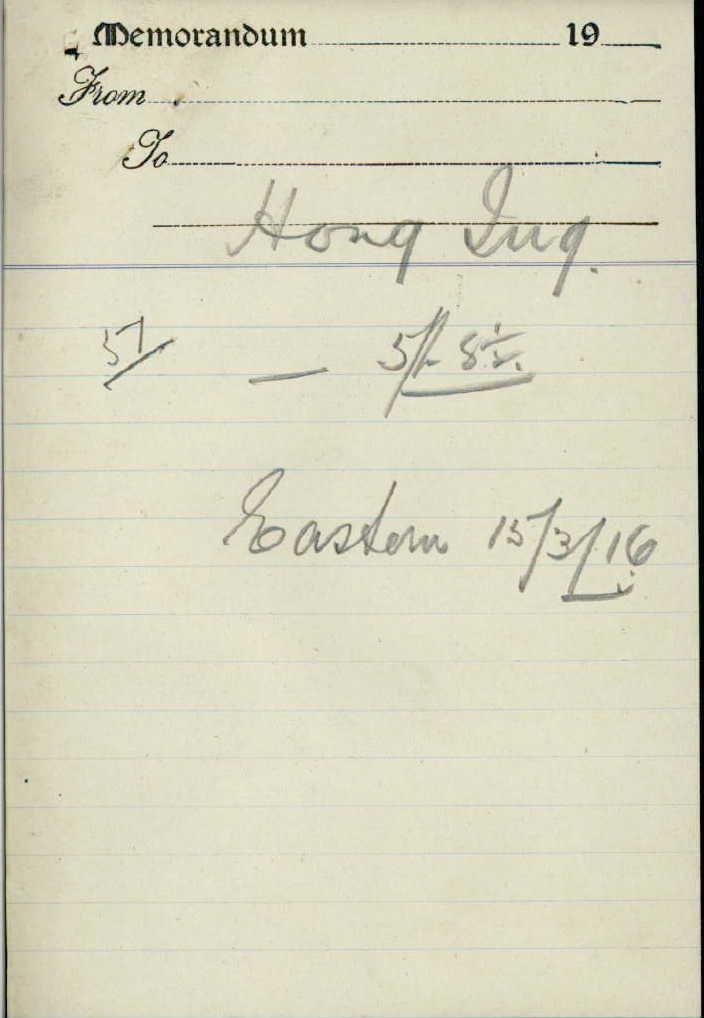 Memorandum 19
From
To
Hong Ing.
57 — 5/- 8½.
Eastern 15/3/16